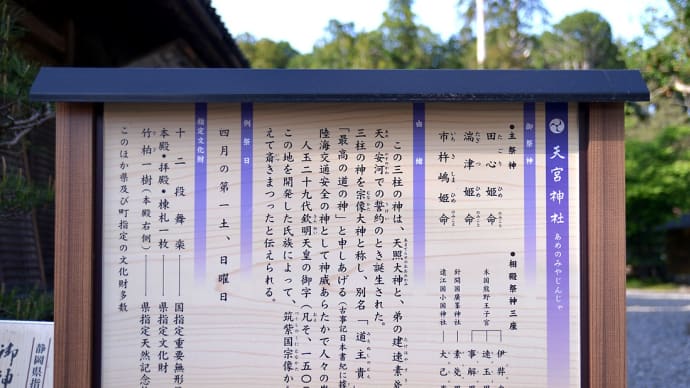 天宮神社 あめのみやじんじゃ
御祭神
●主祭神
田心姫命
たごりひめのみこと
湍津姫命
たぎつひめのみこと
市杵嶋姫命
いちきしまひめのみこと
●相殿祭神三座
本国熊野王子宮
針間国廣峯神社
遠江国小国神社
由緒
この三柱の神は、天照大神と、弟の建速素
天の安河での誓約のとき誕生された。
三柱の神を宗像大神と称し、別名「道主貴
「最高の道の神」と申しあげる(古事記日本書紀に
陸海交通安全の神として神威あらたかで人々の
人玉二十九代欽明天皇の御宇(凡そ、一五〇
この地を開発した氏族によって、筑紫国宗像か
えて斎きまつったと伝えられる。
例祭日
四月の第一土、日曜日
指定文化財
十二段舞楽――国指定重要無形
本殿・拝殿・棟札一枚――県指定文化財
竹柏一樹(本殿右側)――県指定天然記
このほか県及び町指定の文化財多数
静岡県指
御神